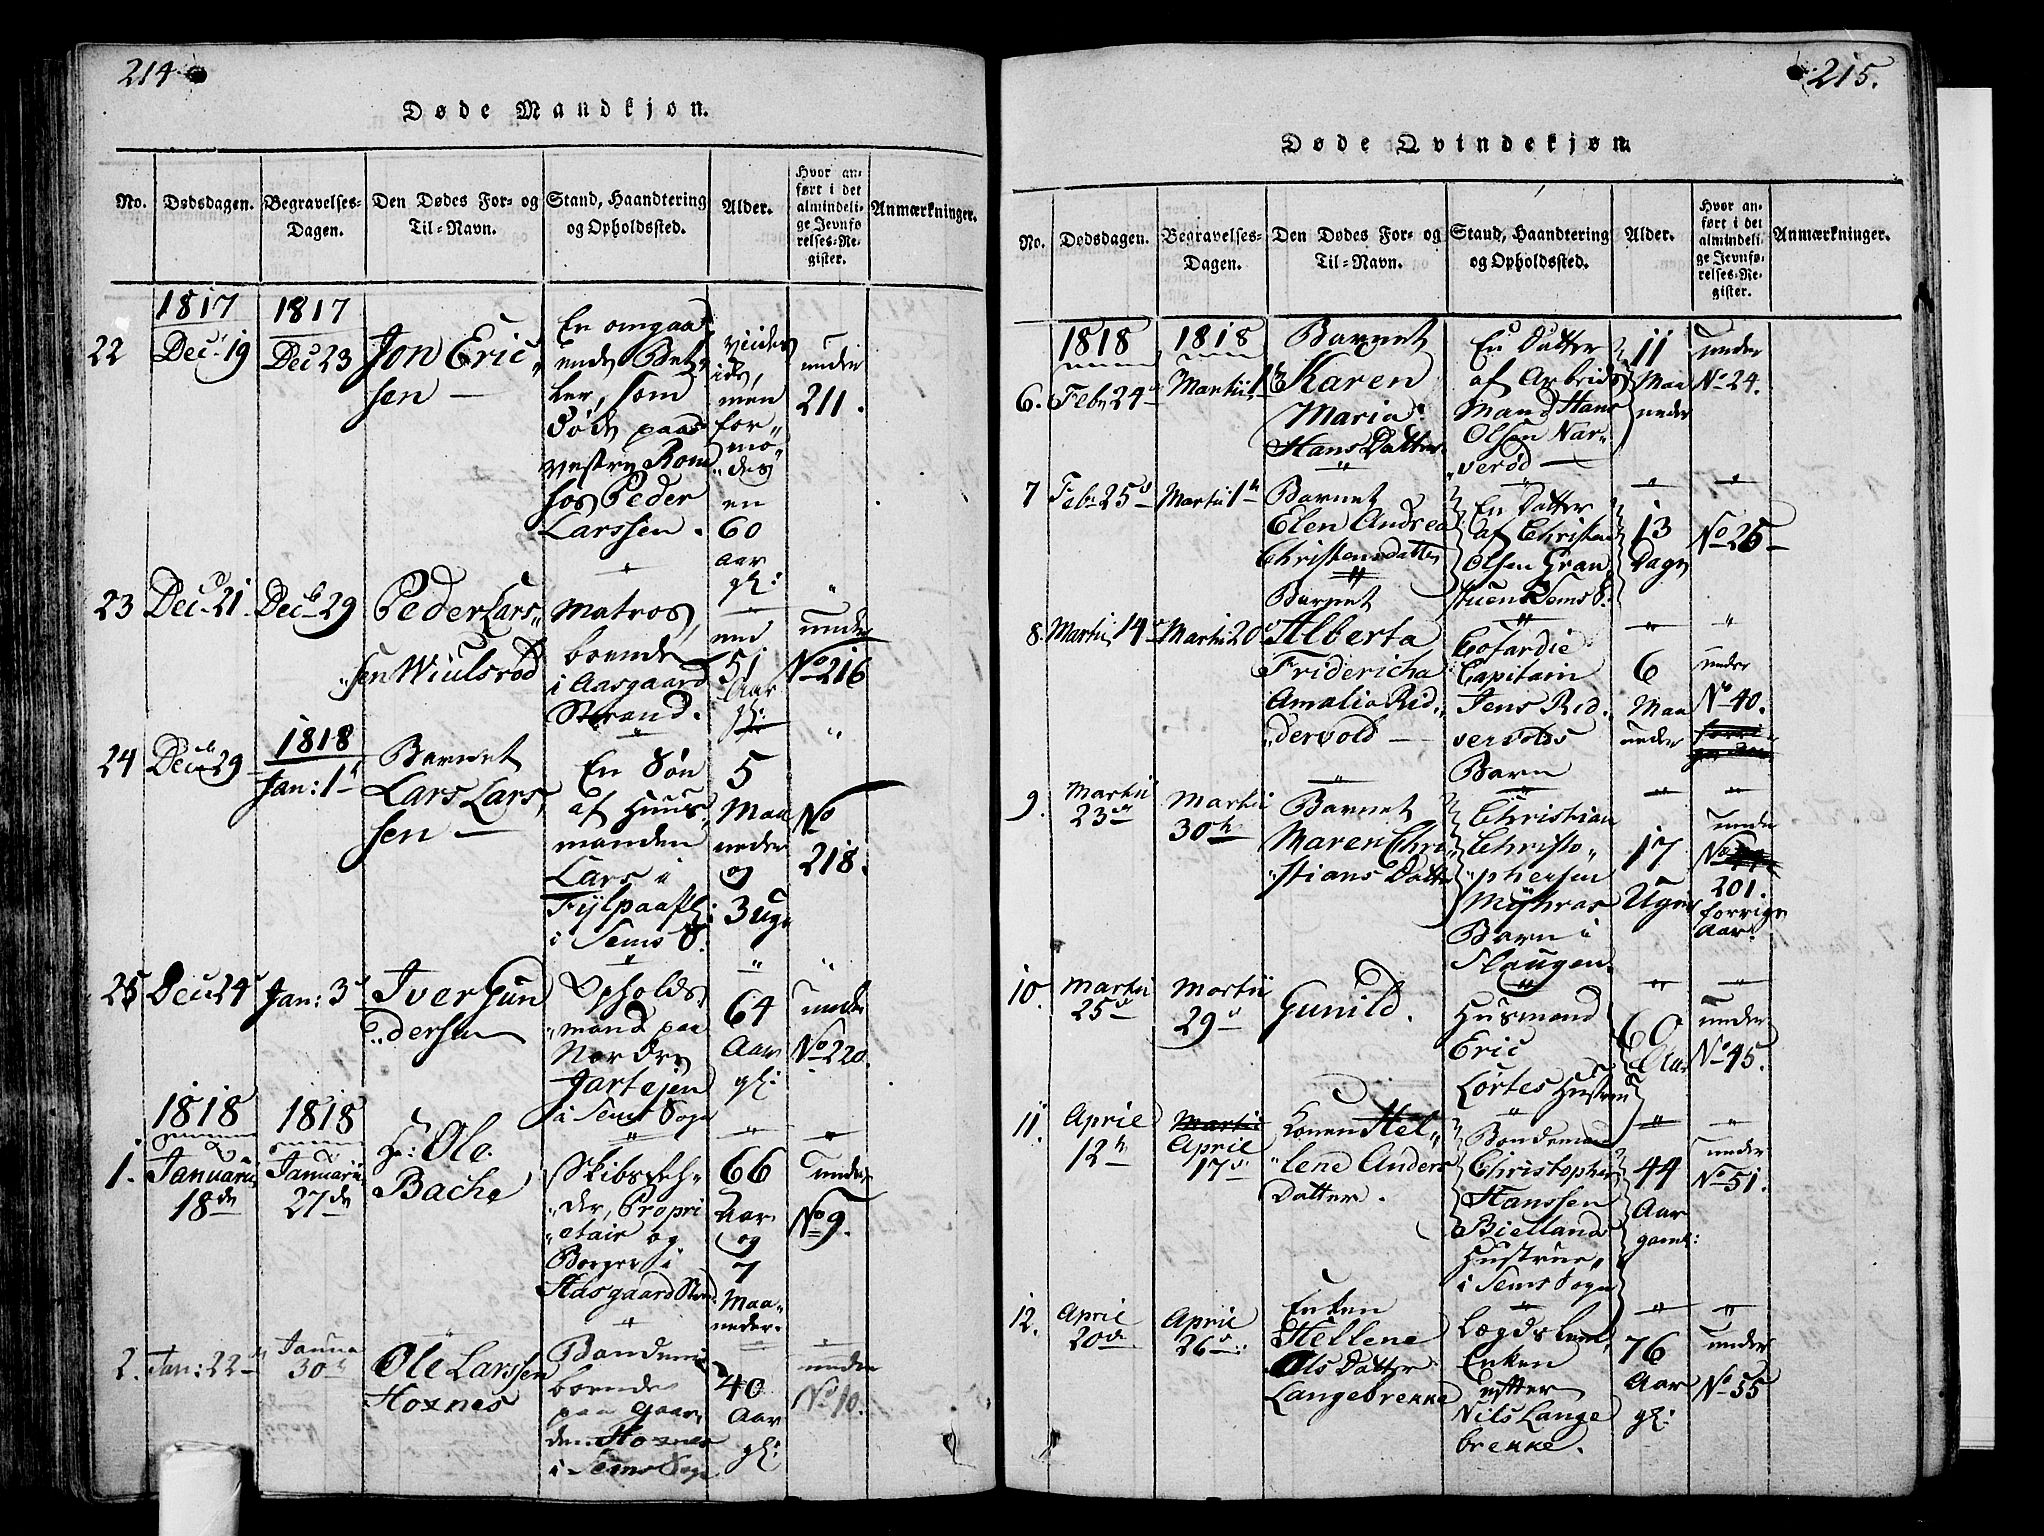 214
Døde Mandkjøn.
No.
Dødsdagen.
Begravelses-
Dagen.
Den Dødes For- og
Til-Navn.
Stand, Haandtering
og Opholdssted.
Alder.
Hvor an-
ført i det
almindeli-
ge Jevnfø
relses-Re-
gister.
Anmærkninger.
22
1817
Dec. 19
1817
Dec 23
Jon Eric
sen —
En omgaa
ende Bet
ler, som
døde paa
vestre Rom
sos Peder
Larssen.
vides
men
for
mo
des
en
60
aar
gl:
under
211.
23
Dec. 21.
Dec 29
Peder Lars
sen Wiulsrød
Matros,
boende
i Aasgaard
Strand.
51
Aar
gl:
under
No 216
24
Dec. 29
1818
Jan: 1
Barnet
Lars Lars
sen —
En Søn
af Huus
manden
Lars i
i Sems S:
5
Maa
neder
og
3 uge
No
218.
25
Dec. 24
Jan: 3
Iver Gun
dersen
Opholds
mand paa
Nordre
Jartejen
i Sems Sogn
64
Aar
gl:
under
No 220.
1.
1818
Januarii
18de
1818
Januarii
27de
Hr: Ole
Bache
Skibsreh
der, Propri
etair og
Borger i
Aasgaard Strand
66
Aar
og
7
Maa
neder.
under
No 9.
2.
Jan: 22
Janua
30
Ole Larssen
Hoxnes
Bonde
boende
paa Gaar
den Hoxnes
i Sems Sogn
40
Aar
gl:
under
No 10.
215.
Døde Qvindekjøn.
No.
Dødsdagen.
Begravelses-
Dagen.
Den Dødes For- og
Til-Navn.
Stand, Haandtering
og Opholdssted.
Alder.
Hvor an-
ført i det
almindeli-
ge Jevnfø-
relses-Re-
gister.
Anmærkninger.
6.
1818
Feb 24
1818
Martii 1
Barnet
Karen
Maria
Hans Datter
En Datter
af Arbeids
Mand Hans
Olsen Nar
verød —
11
Maa
neder
under
No 24.
7
Feb 25
Martii 1
Barnet
Elen Andrea
Christensdatter
En Datter
af Christen
Olsen Gran
stuen Sems S:
13
Dage
No 25
8.
Martii 14
Martii 20
Barnet
Alberta
Fridericha
Amalia Rid
dervold —
Cofardie
Capitain
Jens Rid
dervolds
Barn
6
Maa
neder
under
No 40.
9.
Martii
23
Martii
30
Barnet
Maren Chri
stians Datter
Christian
Christo
phersen
Myhras
Barn i
Slaugen.
17
Uger
under
No
201.
forrige
Aar.
10.
Martii
25
Martii
29
Gunild.
Husmand
Eric
Lørtes Hustrue
60
Aar
under
No 45.
11.
April
12
Martii
April
17
Konen Hel
lene Anders
Datter.
Bondemand
Christopher
Hanssen
Biellands
Hustrue,
i Sems Sogn
44
Aar
gaml:
under
No 51.
12.
April
20
April
26
Enken
Hellene
Ols Datter
Langebrekke
Lægdslem,
Enken
efter
Nils Lange
brekke.
76
Aar
gl:
under
No 55